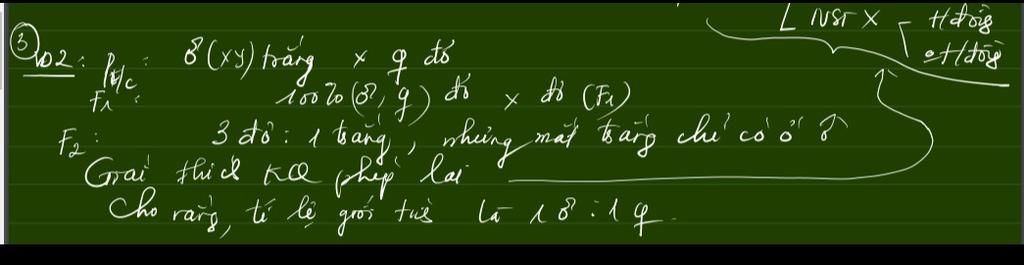 NST X
Hđồng
∅ Hđồng
③
VD2: Pt/c: ♂(xy) trắng × ♀ đỏ
F1: 100% (♂, ♀) đỏ × đỏ (F1)
F2: 3 đỏ : 1 trắng, nhưng mắt trắng chỉ có ở ♂
Giải thích KQ phép lai
Cho rằng, tỉ lệ giới tính là 1♂ : 1♀.